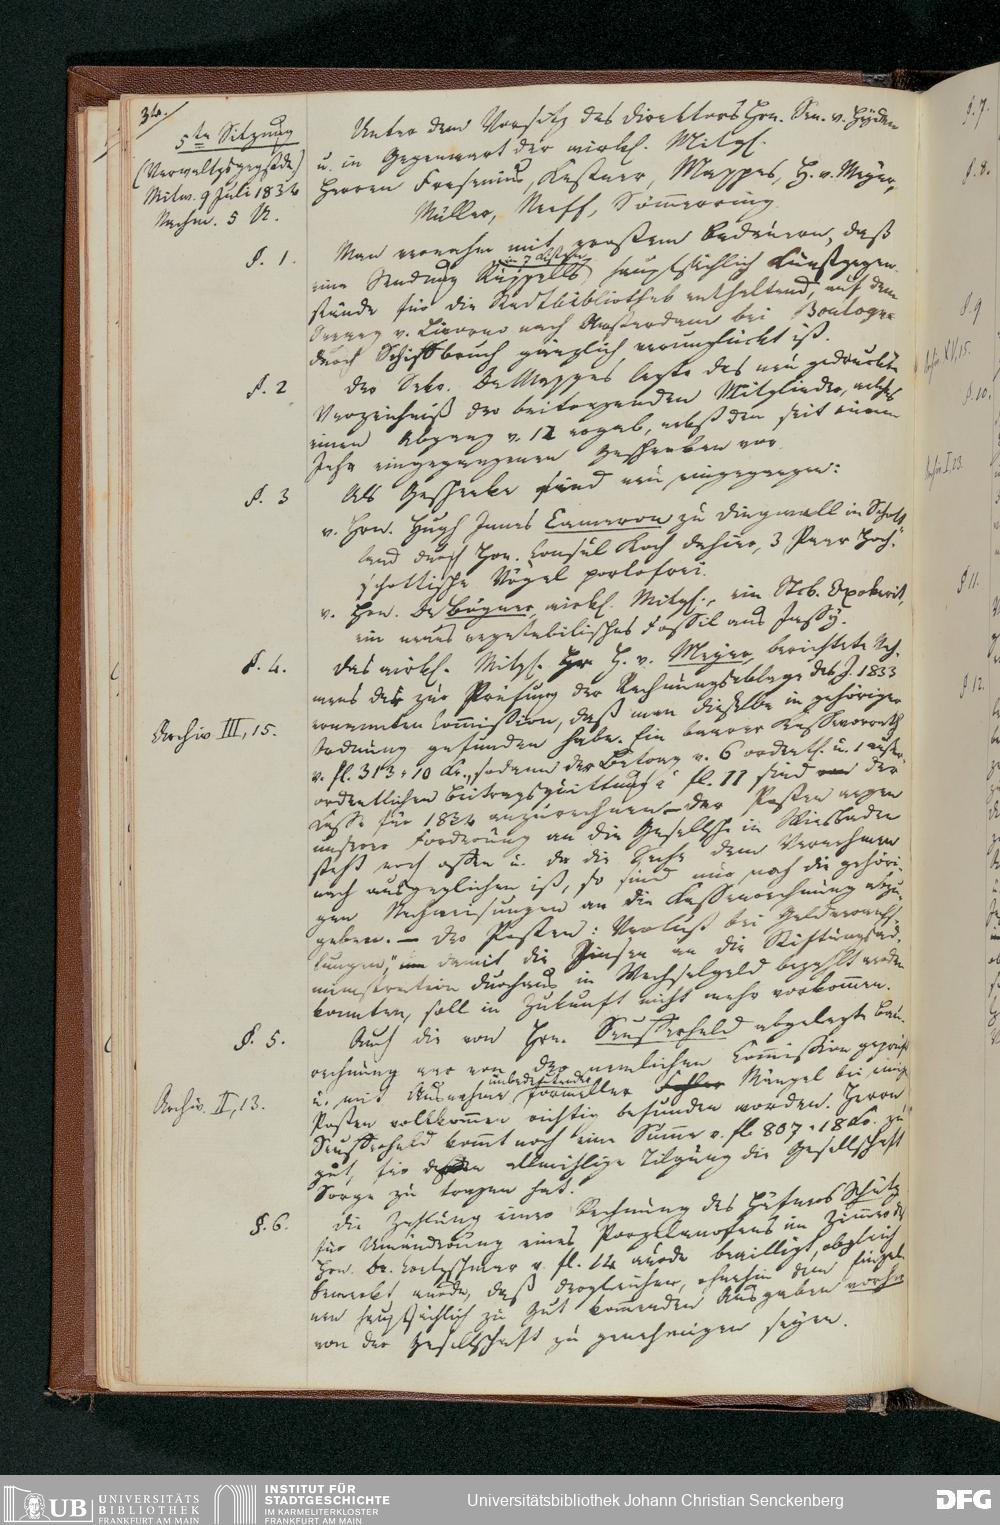 34.
5te Sitzung
(Verwaltgsgegstde)
Mitw. 9 Juli 1834
Nachm. 5 U.
Unter dem Vorsitz des Direktors Hrn. Sen. v. Heyden
u. in Gegenwart der wirkl. Mitgl.
Herren Fresenius, Kestner, Mappes, H. v. Meyer,
Müller, Neeff, Sömmerring.
§. 1.
Man vernahm mit großem Bedauern, daß
in 7 Kisten
eine Sendung Rüppells hauptsächlich Kunstgegen-
stände für die Stadtbibliothek enthaltend, auf dem
v. Livorno nach Amsterdam bei Boulogne
durch Schiffbruch gänzlich verunglückt ist.
§. 2
Der Sekr. Dr Mappes legte das neu gedruckte
Verzeichniß der beitragenden Mitglieder, welches
einen Abgang v. 12 ergab, nebst den seit einem
Jahr eingegangenen Geschenken vor.
§. 3
Als Geschenke sind neu eingegangen:
v. Hrn. Hugh Innes Cameron zu Dingwall in Schott-
land durch Hrn. Consul Koch dahier, 3 Paar Hoch-
schottische Vögel portofrei.
v. Hrn. Dr Bögner, wirkl. Mitgl., ein Stck.
ein neues vegetabilisches Fossil aus Jassy.
§. 4.
Archiv III, 15.
Das wirkl. Mitgl. Hr H. v. Meyer, berichtete Na-
mens der zur Prüfung der Rechnungsablage des J. 1833
ernannten Commission, daß man dieselbe in gehöriger
Ordnung gefunden habe. Ein baarer Kassevorrath
v. fl. 313 " 10 Kr., sodann der Betrag v. 6 ordentl. u. 1 außer-
ordentlichen Beitragsquittung fl. 11 sind der
Kasse für 1834 anzurechnen. – Der Posten wegen
unserer Forderung an die Gesellsch. in Wiesbaden
steht noch offen u. da die Sache dem Vernehmen
nach ausgeglichen ist, so sind nur noch die gehöri-
gen Nachweisungen an die Kassenrechnung abzu-
geben. – Der Posten: "Verlust bei Geldverwechs-
lungen", damit die Zinsen an die Stiftungsad-
ministration durchaus in Wechselgeld bezahlt werden
konnten, soll in Zukunft nicht mehr vorkommen.
§. 5.
Archiv. II, 13.
Auch die von Hrn. Seufferheld abgelegte Bau-
rechnung war von der nemlichen Commission geprüft
unbedeutender
u. mit Ausnahme formeller Mängel bei einigen
Posten vollkommen richtig befunden worden. Herrn
Seufferheld kommt noch eine Summe v. fl. 807 " 18 Kr. zu
gut, für deren allmählige Tilgung die Gesellschaft
Sorge zu tragen hat.
§. 6.
Die Zahlung einer Rechnung des Häfners Schütz
für Umänderung eines Porzellanofens im Zimmer des
Hrn. Dr. Cretzschmar v. fl. 14 wurde bewilligt, obgleich
bemerkt wurde, daß dergleichen, ohnehin dem Einzel-
nen hauptsächlich zu Gut kommenden Ausgaben vorher
von der Gesellschaft zu genehmigen seyen.
§. 7.
§. 8.
§. 9
Archiv XV, 15.
§. 10.
Archiv I, 23.
§ 11.
§ 12.
UB UNIVERSITÄTS
BIBLIOTHEK
FRANKFURT AM MAIN
INSTITUT FÜR
STADTGESCHICHTE
IM KARMELITERKLOSTER
FRANKFURT AM MAIN
Universitätsbibliothek Johann Christian Senckenberg
DFG